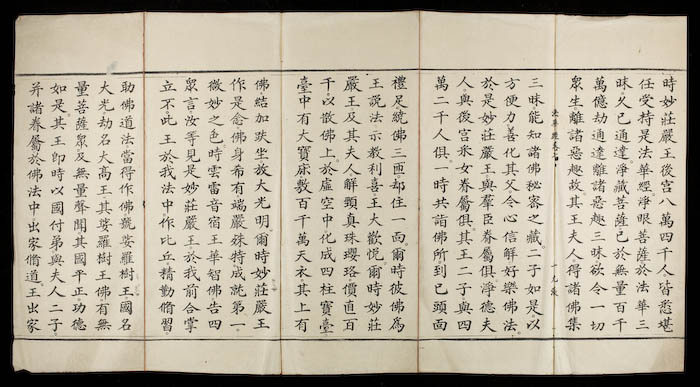 時妙莊嚴王後宮八萬四千人皆悉堪
任受持是法華經淨眼菩薩於法華三
昧久已通達淨藏菩薩已於無量百千
萬億劫通達離諸惡趣三昧欲令一切
眾生離諸惡趣故其王夫人得諸佛集
法華經卷七
三昧能知諸佛秘密之藏二子如是以
方便力善化其父令心信解好樂佛法
於是妙莊嚴王與羣臣眷屬俱淨德夫
人與後宮采女眷屬俱其王二子與四
萬二千人俱一時共詣佛所到已頭面
禮足繞佛三匝却住一面爾時彼佛為
王說法示教利喜王大歡悅爾時妙莊
嚴王及其夫人解頸真珠瓔珞價直百
千以散佛上於虛空中化成四柱寶臺
臺中有大寶牀敷百千萬天衣其上有
佛結加趺坐放大光明爾時妙莊嚴王
作是念佛身希有端嚴殊特成就第一
微妙之色時雲雷音宿王華智佛告四
眾言汝等見是妙莊嚴王於我前合掌
立不此王於我法中作比丘精勤脩習
助佛道法當得作佛號娑羅樹王國名
大光劫名大高王其娑羅樹王佛有無
量菩薩眾及無量聲聞其國平正功德
如是其王即時以國付弟與夫人二子
并諸眷屬於佛法中出家脩道王出家